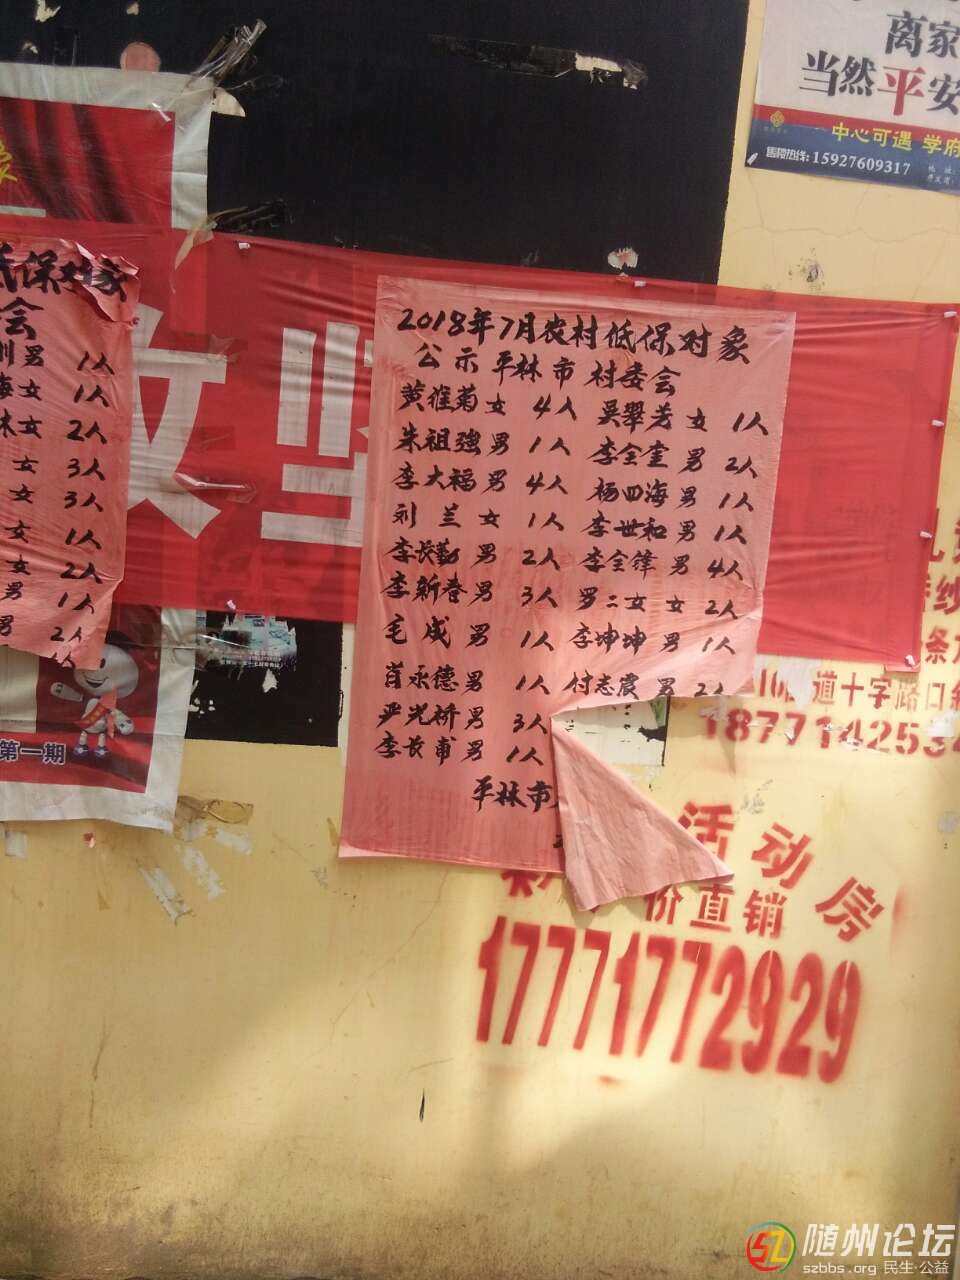 离家
当然平安
中心可遇 学府
售楼热线: 15927609317
低保对象
会
男 1人
海女 1人
女 2人
女 3人
女 3人
女 1人
女 2人
男 1人
男 2人
第一期
2018年7月农村低保对象
公示平林市村委会
黄维菊 女 4人 吴翠芳 女 1人
朱祖强 男 1人 李全奎 男 2人
李大福 男 4人 杨四海 男 1人
刘兰 女 1人 李世和 男 1人
李长勤 男 2人 李全锋 男 4人
李新春 男 3人 罗二女 女 2人
毛成 男 1人 李坤坤 男 1人
肖永德 男 1人 付志宸 男 2人
严光桥 男 3人
李长甫 男 1人
平林市
道十字路口
1877142534
活动房
价直销
17771772929
随州论坛
szbbs.org 民生·公益